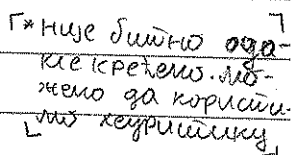 *није битно ода-
кле крећемо. мо-
жемо да користи-
мо хеуристику